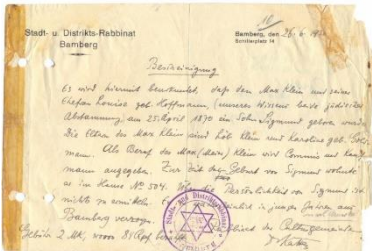 Stadt- u. Distrikts-Rabbinat
Bamberg
Bamberg, den 26. 6.
Schillerplatz 14
Bescheinigung
Es wird hiermit beurkundet, daß dem Max Klein und seiner
Ehefrau Louise geb. Hoffmann, (unseres Wissens beide jüdischer
Abstammung) am 25 April 1870 ein Sohn Sigmund geboren wurde
Die Eltern des Max Klein sind Löb Klein und Karoline geb. Gold-
mann. Als Beruf des Max Klein wird Commis und Kauf-
mann angegeben. Zur Zeit der Geburt von Sigmund wohnte
im Hause No 504. Persönlichkeit von Sigmund ist
nichts zu ermitteln in jungen Jahren aus
Bamberg verzogen.
Gebühr 2 MK, der Cultusgemeinde
Stadt- und Distriktsrabbinat
Bamberg